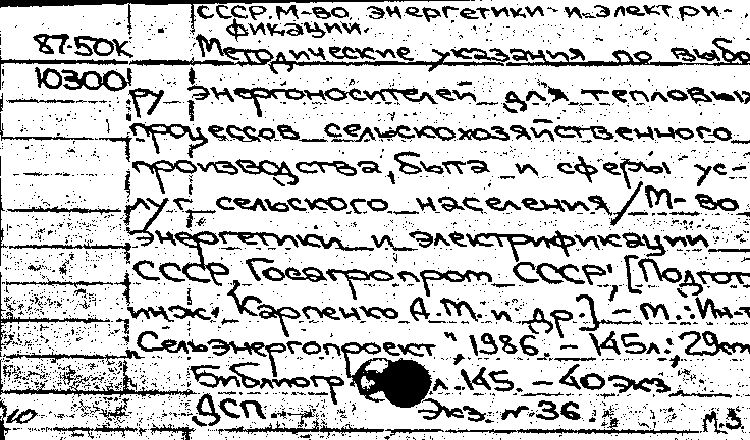 СССР. М-во энергетики и электри-
фикации.
87-50К Методические указания по выбо
10300
ру энергоносителей для тепловых
процессов сельскохозяйственного
производства, быта и сферы ус-
луг сельского населения / М-во
энергетики и электрификации
СССР, Госагропром СССР; [Подгот
инж. Карпенко А.М. и др.] - М.: Ин-т
"Сельэнергопроект", 1986. - 145л.; 29см
Библиогр. л.145. - 40 экз.
ДСП. Экз. № 36.
М.З.